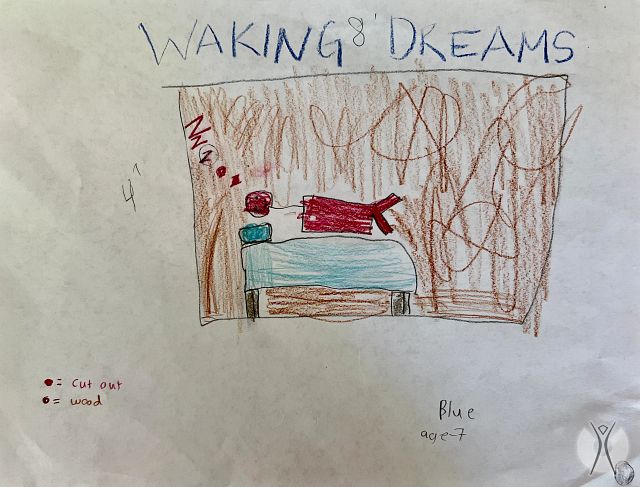 WAKING 8' DREAMS
4'
● = cut out
● = wood
Blue
age-7